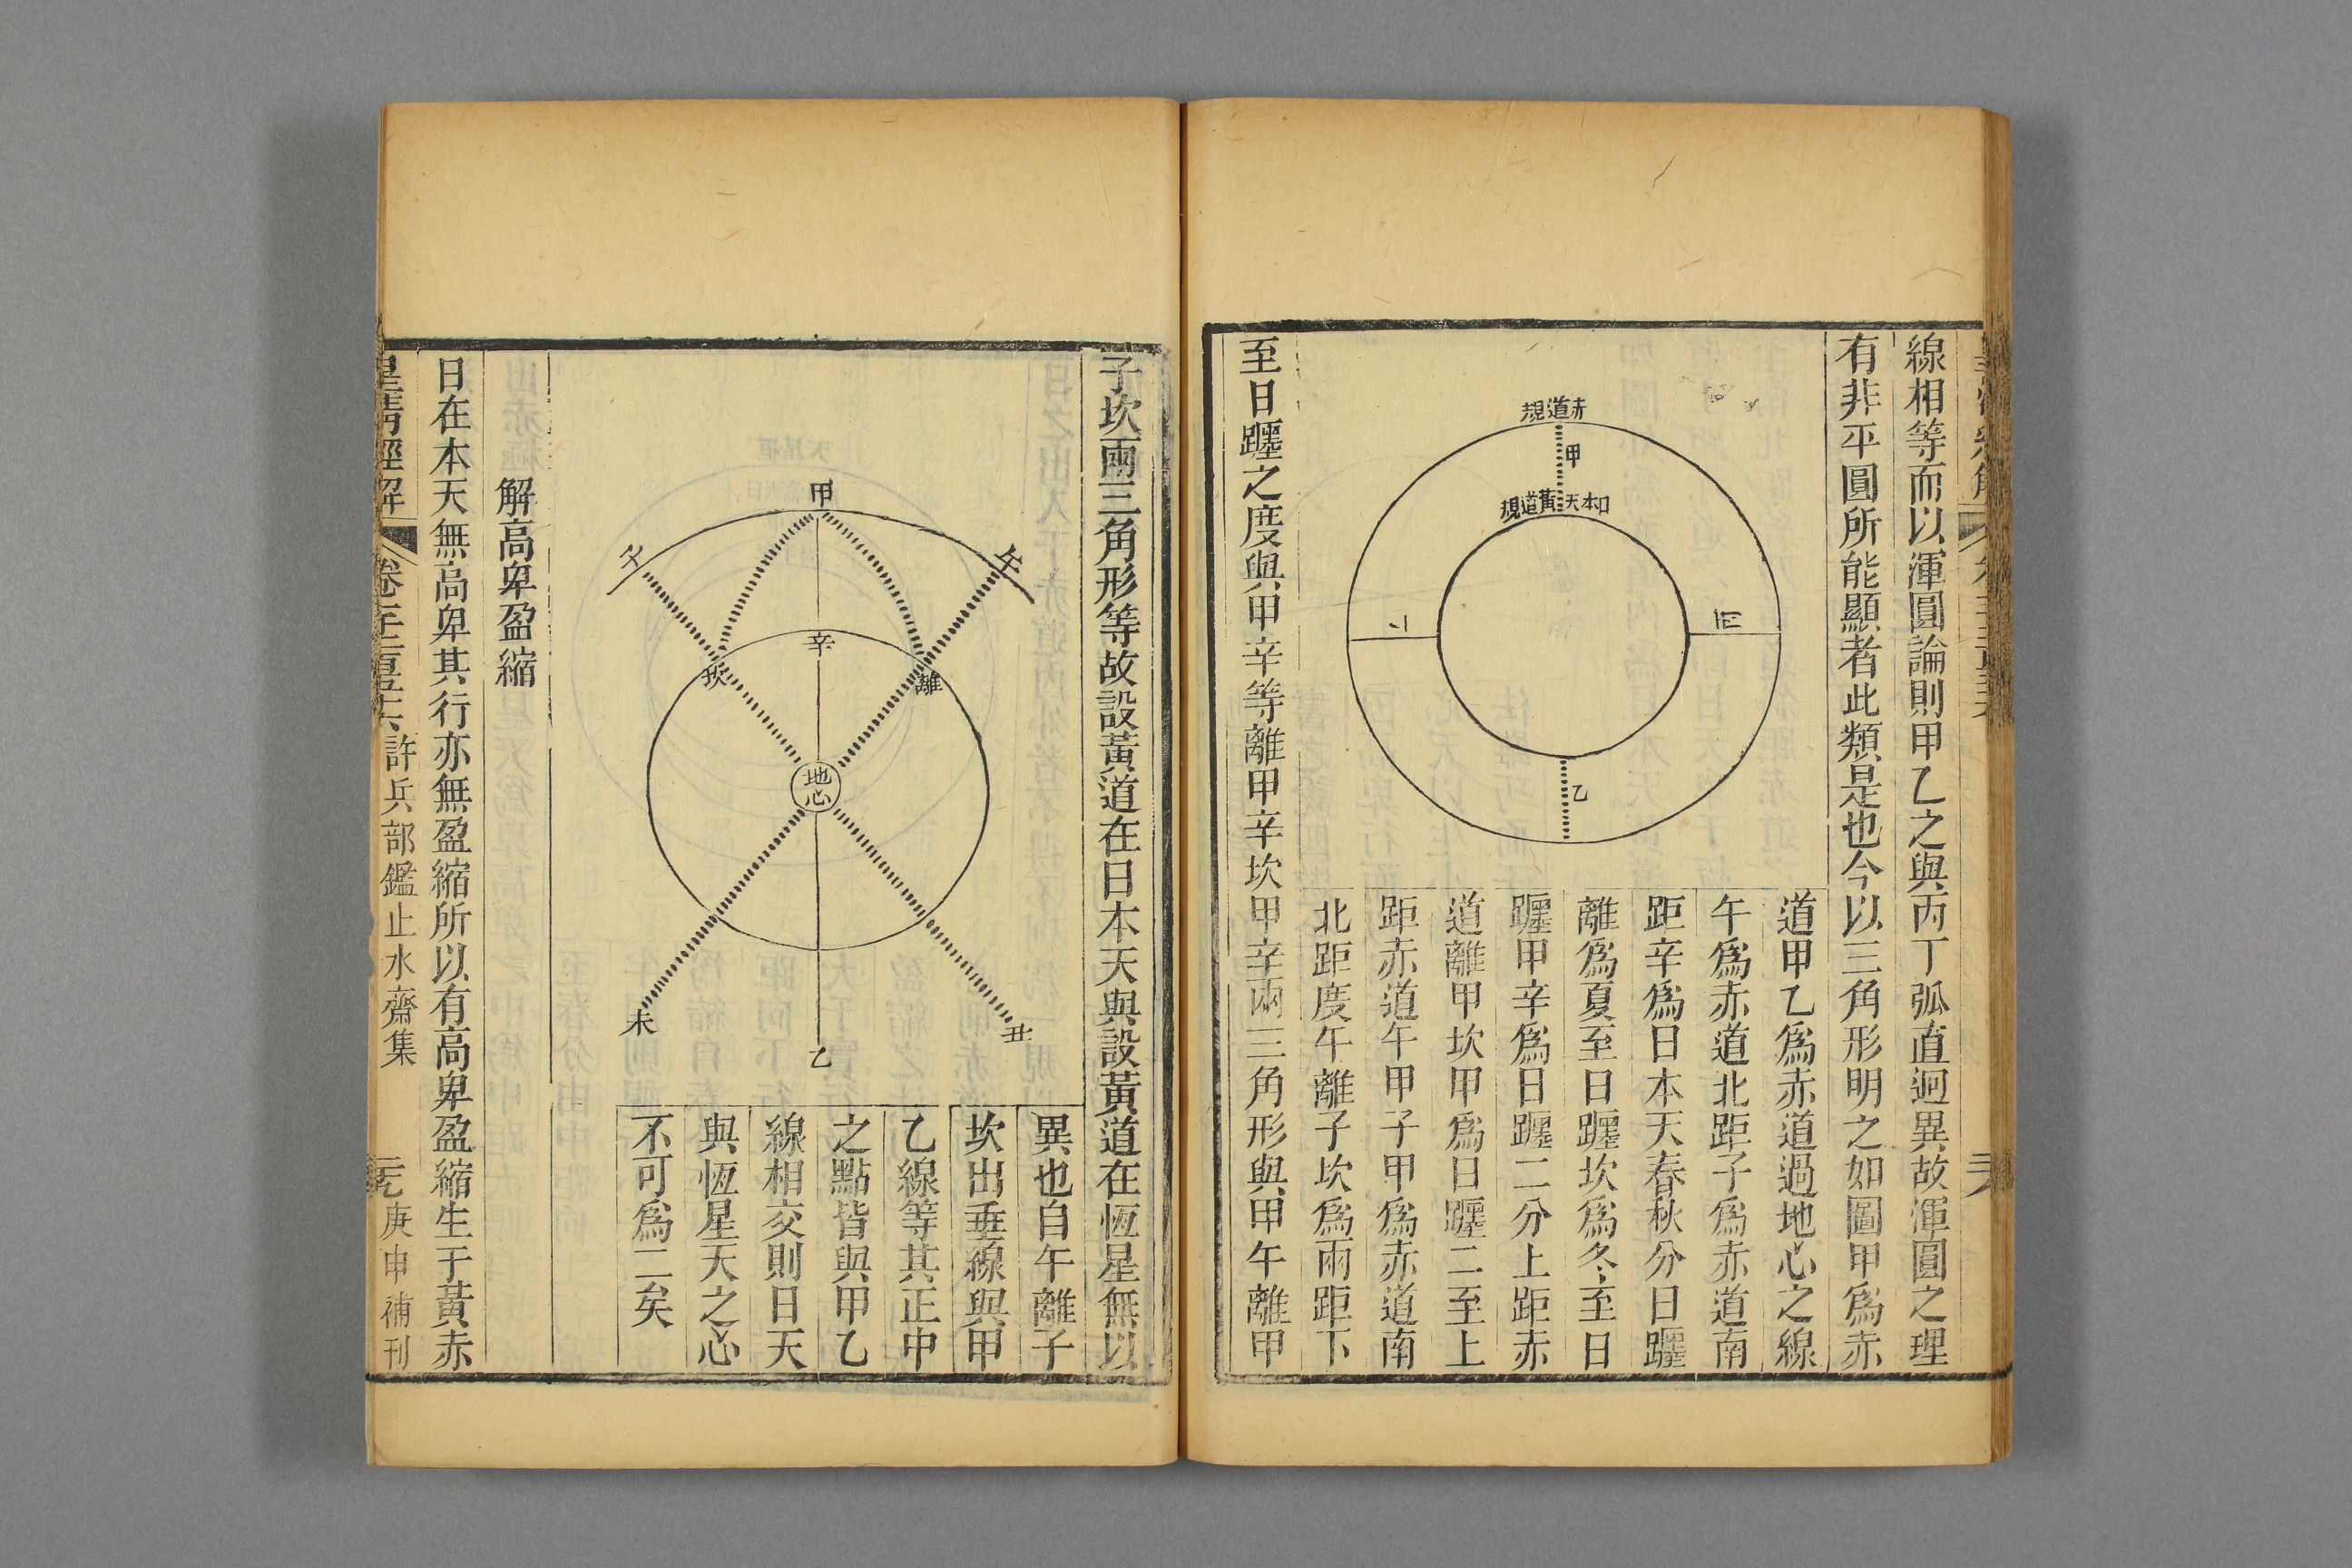 線相等而以渾圓論則甲乙之與丙丁弧直迥異故渾圓之理
有非平圓所能顯者此類是也今以三角形明之如圖甲爲赤
赤道規
甲
日本天黃道規
乙
道甲乙爲赤道過地心之線
午爲赤道北距子爲赤道南
距辛爲日本天春秋分日躔
離爲夏至日躔坎爲冬至日
躔甲辛爲日躔二分上距赤
道離甲坎甲爲日躔二至上
距赤道午甲子甲爲赤道南
北距度午離子坎爲兩距下
至日躔之度與甲辛等離甲辛坎甲辛兩三角形與甲午離甲
子坎兩三角形等故設黃道在日本天與設黃道在恆星無以
甲
午
辛
離
坎
地心
未
丑
乙
異也自午離子
坎出垂線與甲
乙線等其正中
之點皆與甲乙
線相交則日天
與恆星天之心
不可爲二矣
解高卑盈縮
日在本天無高卑其行亦無盈縮所以有高卑盈縮生于黃赤
皇清經解
許兵部鑑止水齋集
庚申補刊